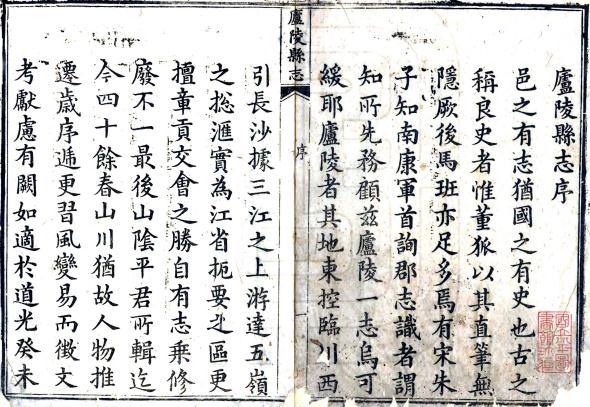 廬陵縣志序
邑之有志猶國之有史也古之
稱良史者惟董狐以其直筆無
隱厥後馬班亦足多焉有宋朱
子知南康軍首詢郡志識者謂
知所先務顧茲廬陵一志烏可
緩耶廬陵者其地東控臨川西
廬陵縣志
序
一
引長沙據三江之上游達五嶺
之捴滙實為江省扼要之區更
擅章貢交會之勝自有志乗修
廢不一最後山陰平君所輯迄
今四十餘春山川猶故人物推
遷歲序遞更習風變易而徴文
考獻慮有闕如適於道光癸未